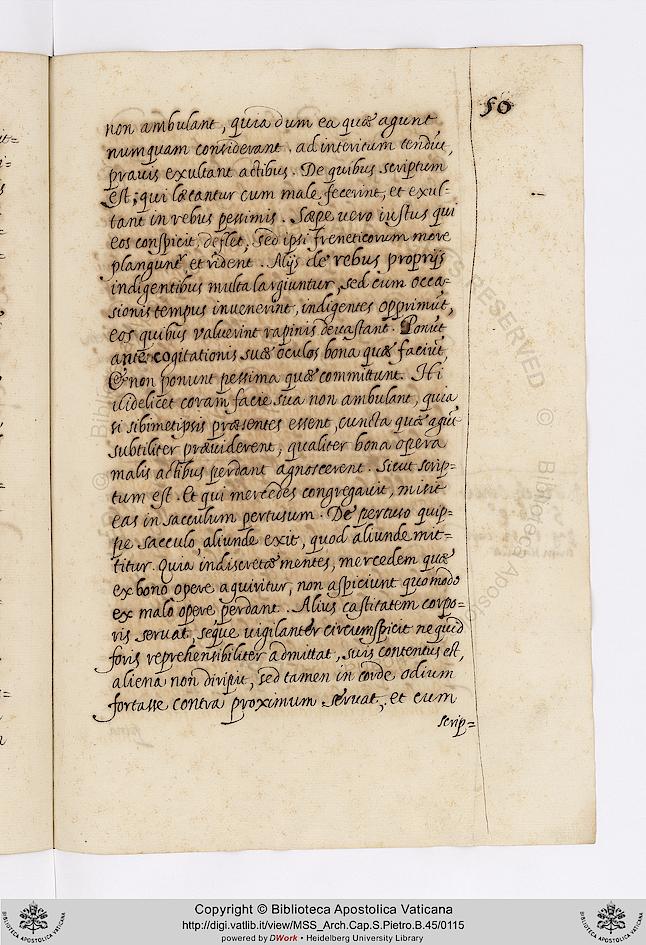 50
non ambulant, quia dum ea quæ agunt
numquam considerant, ad interitum tendūt,
prauis exultant actibus. De quibus scriptum
est; qui lætantur cum male fecerint, et exul-
tant in rebus pessimis. Sæpe uero iustus qui
eos conspicit, deflet, sed ipsi freneticorum more
planguntr et rident. Alijs de rebus proprijs
indigentibus multa largiuntur, sed cum occa-
sionis tempus inuenerint, indigentes opprimūt,
eos quibus valuerint rapinis deuastant. Ponūt
ante cogitationis suæ oculos bona quæ faciūt,
& non ponunt pessima quæ committunt. Hi
uidelicet coram facie sua non ambulant, quia
si sibimetipsis præsentes essent, cuncta quæ agūt
subtiliter præuiderent, qualiter bona opera
malis actibus perdant agnoscerent. Sicut scrip=
tum est. Et qui mercedes congregauit, misit
eas in sacculum pertusum. De pertuso quip=
pe sacculo, aliunde exit, quod aliunde mit=
titur. Quia indiscretæ mentes, mercedem quæ
ex bono opere aquiritur, non aspiciunt quomodo
ex malo opere perdant. Alius castitatem corpo=
ris seruat, seque uigilanter circumspicit ne quid
foris reprehensibiliter admittat, suis contentus est,
aliena non diripit, sed tamen in corde odium
fortasse contra proximum seruat, et cum
scrip=
Copyright © Biblioteca Apostolica Vaticana
http://digi.vatlib.it/view/MSS_Arch.Cap.S.Pietro.B.45/0115
powered by DWork • Heidelberg University Library